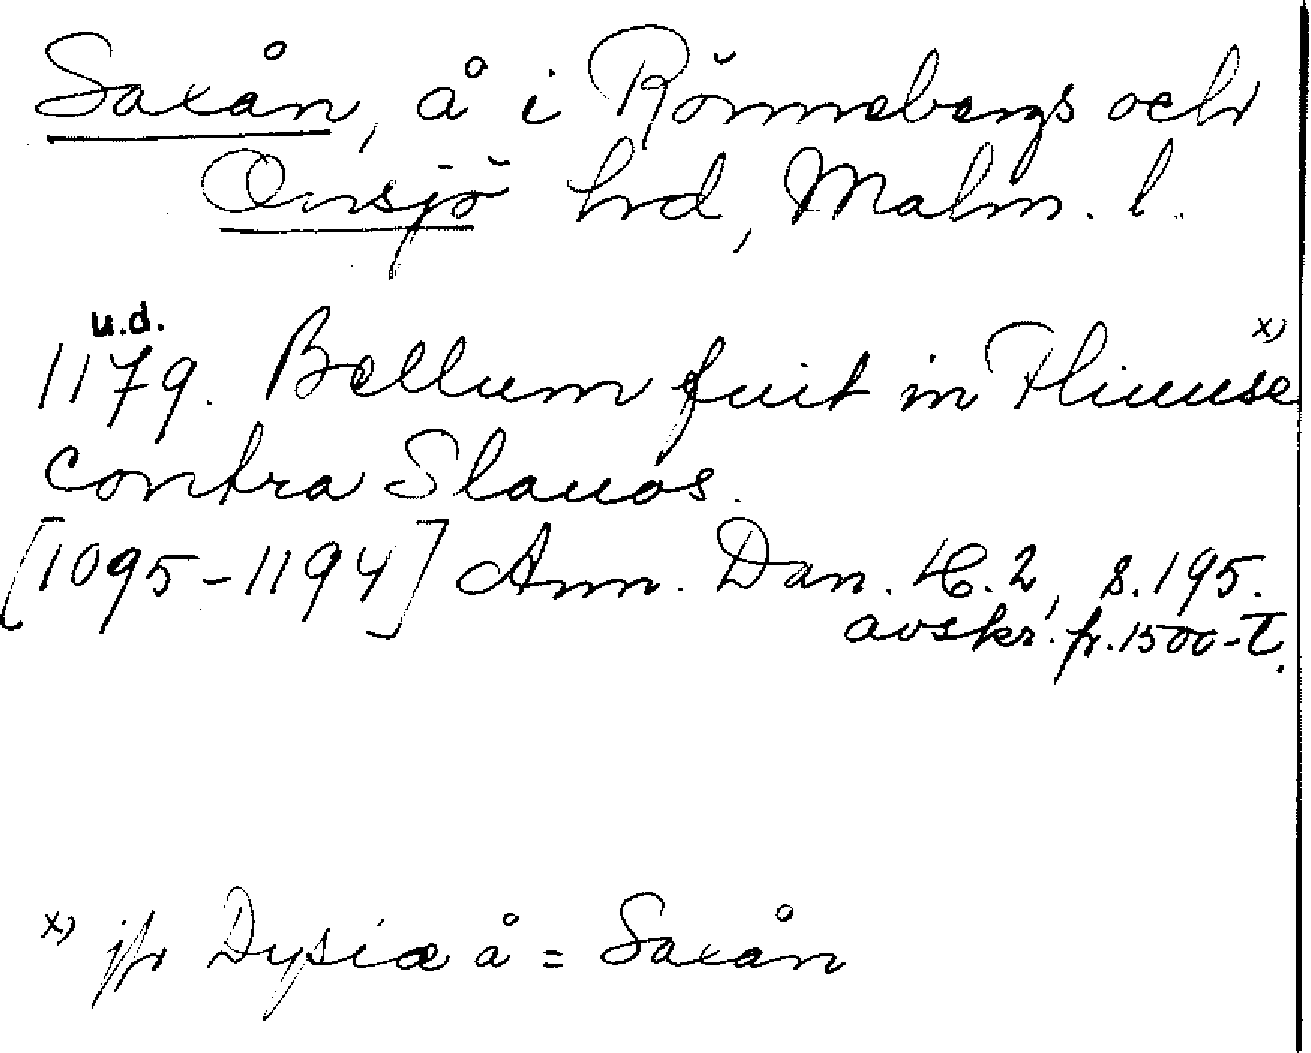 Saxån, å i Rönnebergs och
Onsjö hrd, Malm. l.
u.d.
1179. Bellum fuit in Thiuuse x)
contra Slauos.
[1095-1194] Ann. Dan. H. 2, s. 195.
avskr. fr. 1500-T.
x) jfr Dysiæ å = Saxån